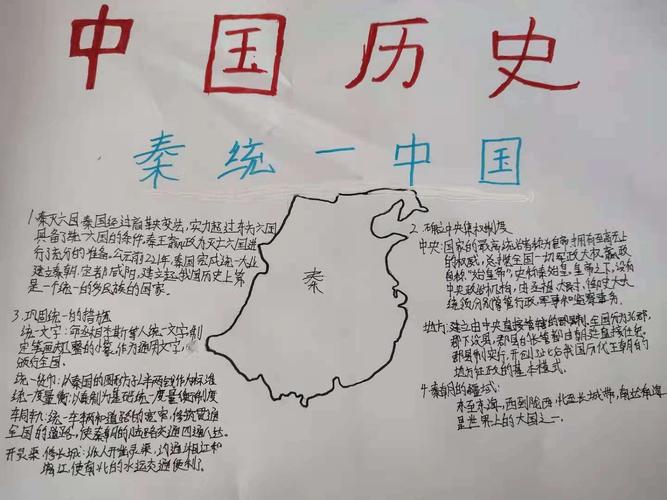 中国历史
秦统一中国
1.秦灭六国 秦国经过商鞅变法,实力超过东方六国
具备了统一六国的条件.秦王嬴政为灭六国进
行了充分的准备,公元前221年,秦国完成统一大业
建立秦朝,定都咸阳,建立起我国历史上第
是一个统一的多民族的国家.
3.巩固统一的措施
统一文字:命丞相李斯等人统一文字,制
定笔画规整的小篆,作为通用文字,
颁行全国.
统一货币:以秦国的圆形方孔半两钱作为标准
统一度量衡:以秦制为基础统一度量衡制度
车同轨:统一车辆和道路的宽窄,修筑贯通
全国的道路,使秦朝的陆路交通四通八达.
开灵渠,修长城:派人开凿灵渠,沟通湘江和
漓江,使南北的水运交通便利了.
秦
2.确立中央集权制度
中央:国家的最高统治者称为皇帝,拥有至高无上
的权威,总揽全国一切军政大权.嬴政
自称"始皇帝",史称秦始皇.皇帝之下,设有
中央政治机构,由丞相,太尉,御史大夫
统领分别掌管行政,军事和监察事务.
地方:建立由中央直接管辖的郡县制.全国分为36郡,
郡下设县,郡县的长官都由朝廷直接任免.
郡县制实行,开创此后我国历代王朝的
地方行政的基本模式.
4.秦朝的疆域:
东至东海,西到陇西,北至长城一带,南达南海
是世界上的大国之一.